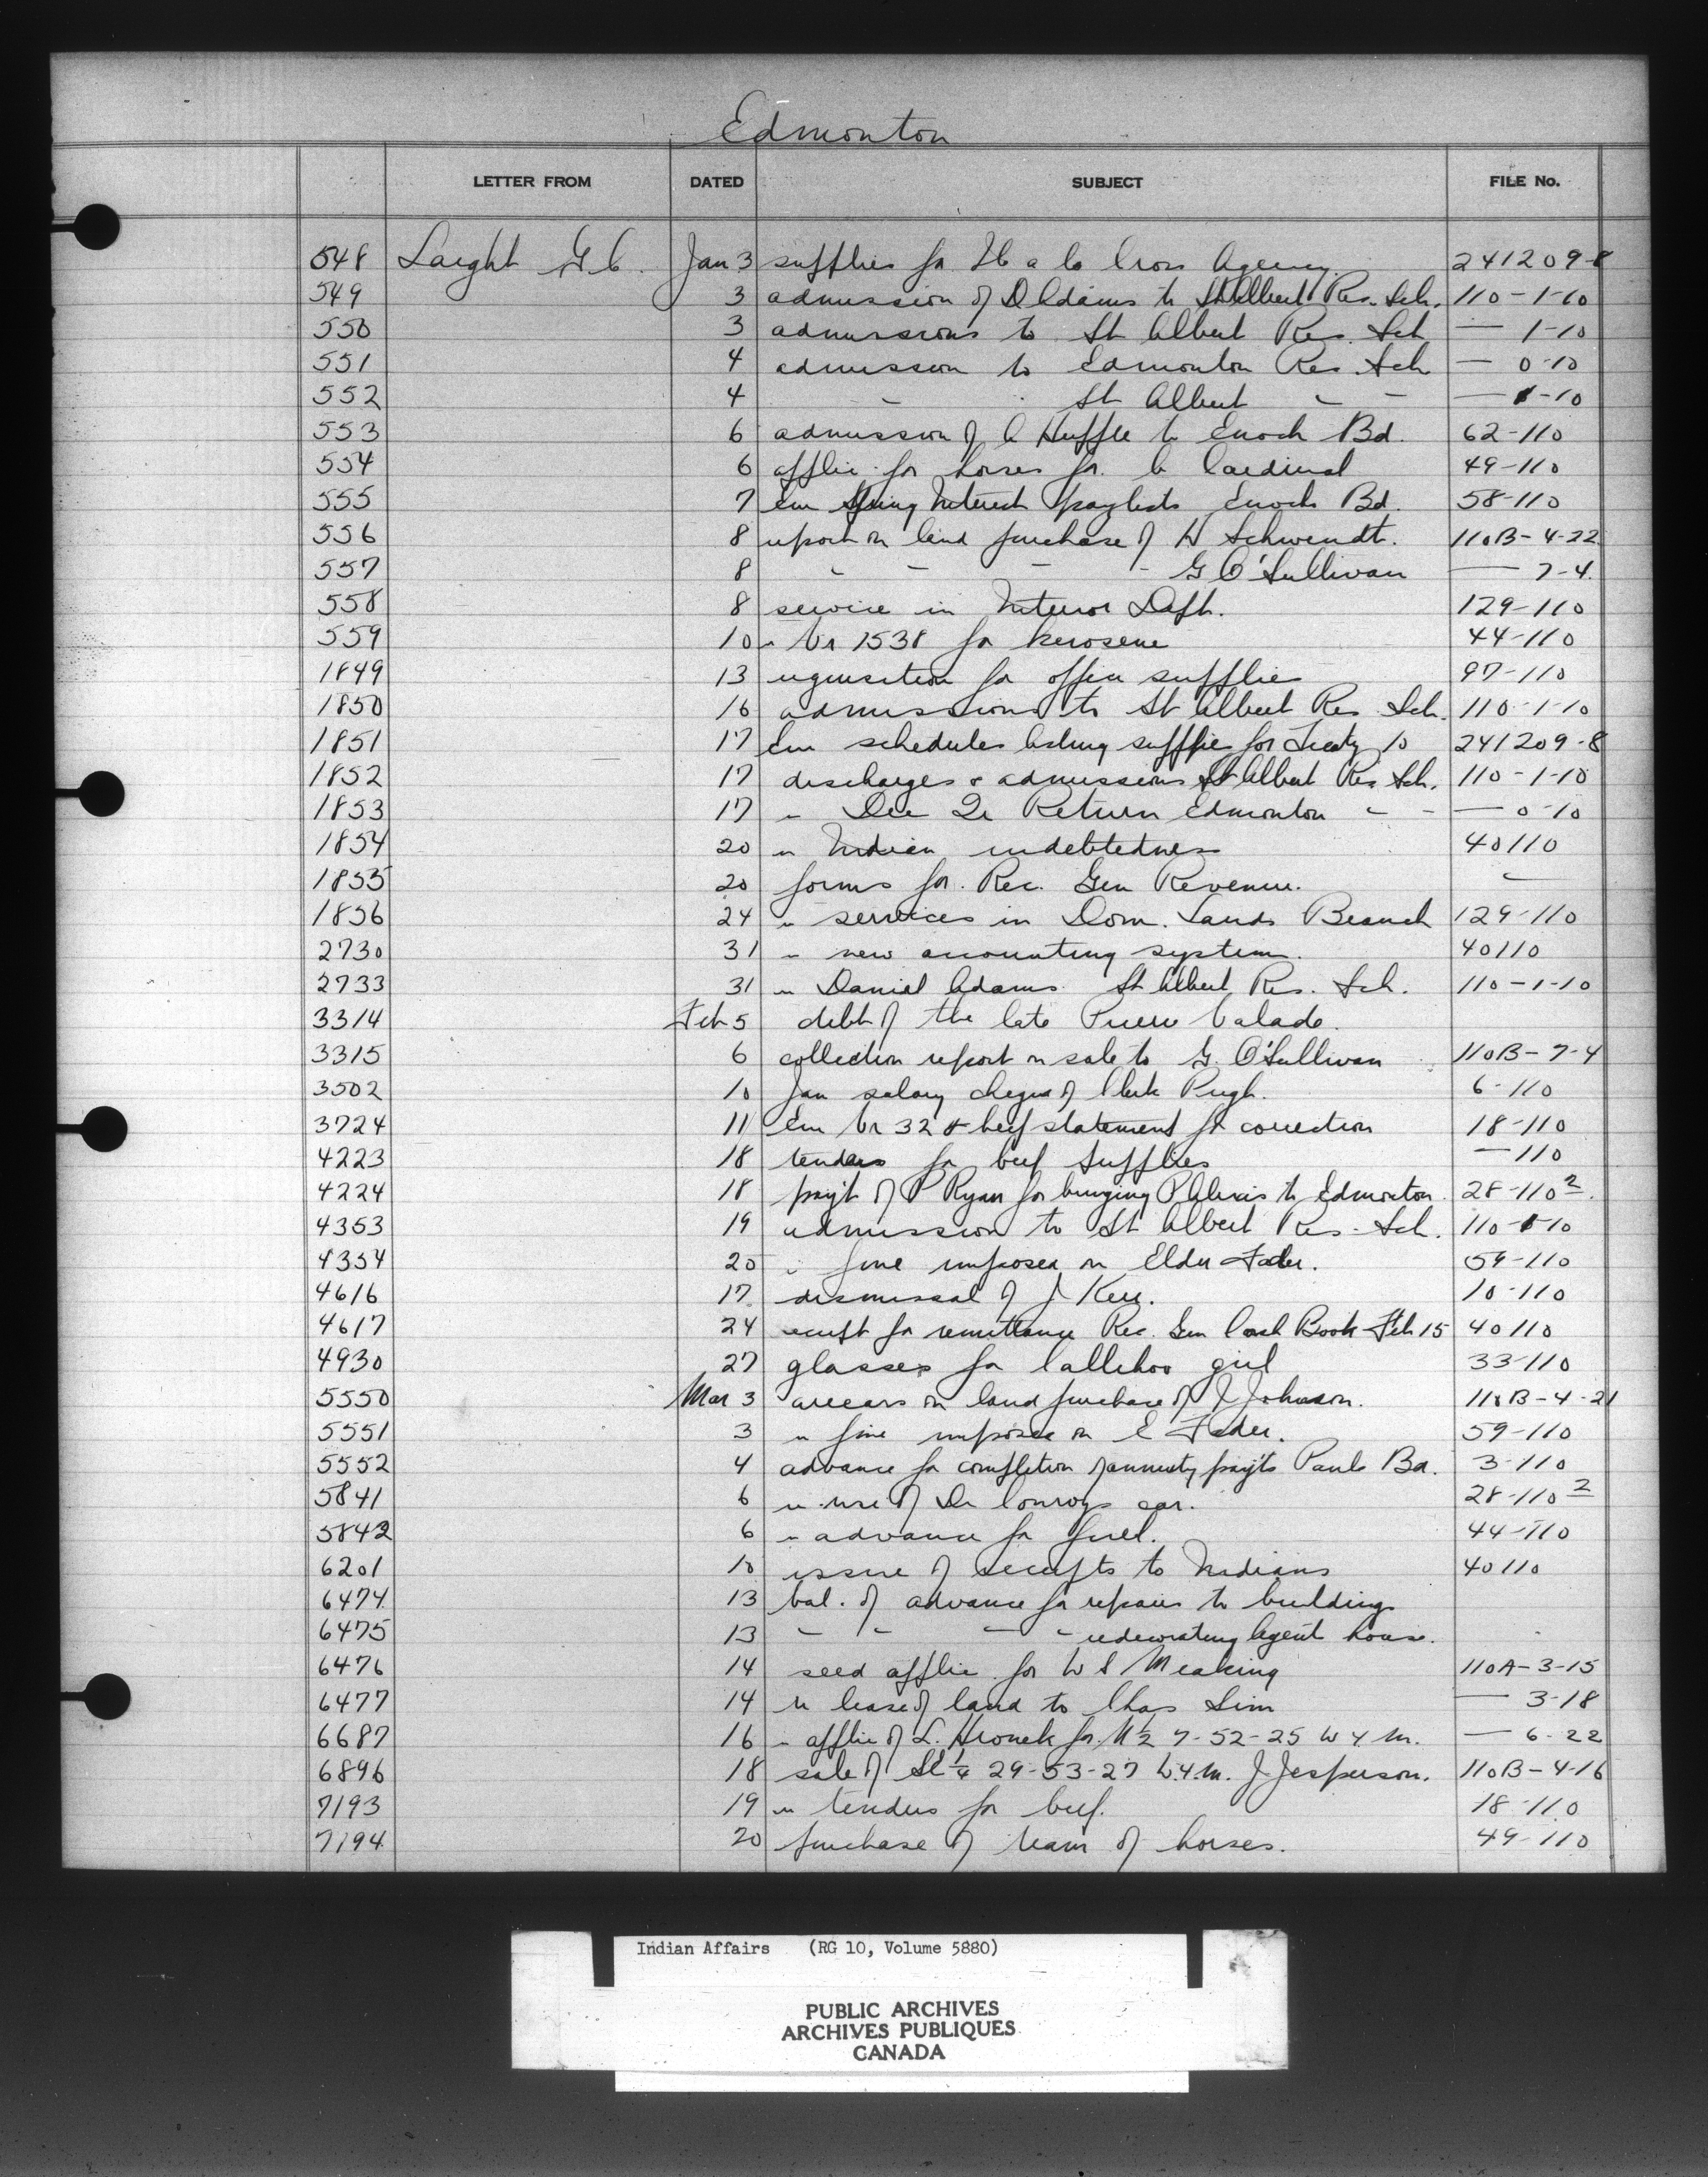 Edmonton
LETTER FROM DATED SUBJECT FILE No.
548 Laight G C. Jan 3 supplies for Ile a la Cross Agency. 241209-8
549 3 admission of D Adams to St Albert Res. Sch. 110-1-10
550 3 admissions to St Albert Res. Sch — 1-10
551 4 admission to Edmonton Res Sch — 0-10
552 4 - St Albert - - — 1-10
553 6 admission of C Huffle to Enoch Bd. 62-110
554 6 applic. for horses for C Cardinal 49-110
555 7 Enc Spring Interest paylists Enoch Bd. 58-110
556 8 report on land purchase of H Schwendt. 110B-4-22
557 8 - - - - G O'Sullivan — 7-4.
558 8 service in Interior Dept. 129-110
559 10 " Vr 1538 for kerosene 44-110
1849 13 requisition for office supplies 97-110
1850 16 admissions to St Albert Res Sch. 110-1-10
1851 17 Enc schedules asking supplies for Treaty 10 241209-8
1852 17 discharges & admissions St Albert Res Sch. 110-1-10
1853 17 " Dec Qr Return Edmonton - - — 0-10
1854 20 " Indian indebtedness 40110
1855 20 forms for Rec. Gen Revenue. -
1856 24 " services in Dom. Lands Branch 129-110
2730 31 " new accounting system. 40110
2733 31 " Daniel Adams St Albert Res. Sch. 110-1-10
3314 Feb 5 debt of the late Pierre Valade.
3315 6 collection report on sale to G. O'Sullivan 110B-7-4
3502 10 Jan salary cheque of Clerk Pugh. 6-110
3724 11 Enc Vr 32 & beef statement for correction 18-110
4223 18 tenders for beef supplies —110
4224 18 pay't of P Ryan for bringing P Alexis to Edmonton. 28-110²
4353 19 admission to St Albert Res. Sch. 110-1-10
4354 20 " fine imposed on Elder Fader. 59-110
4616 17 dismissal of J Kerr. 10-110
4617 24 receipt for remittance Rec. Gen Cash Book Feb 15 40110
4930 27 glasses for Callihoo girl 33-110
5550 Mar 3 arrears on land purchase of J Johnson. 110B-4-21
5551 3 " fine imposed on E Fader. 59-110
5552 4 advance for completion of annuity pay'ts Pauls Bd. 3-110
5841 6 " use of Dr Conroys car. 28-110²
5842 6 " advance for fuel. 44-110
6201 10 issue of receipts to Indians 40110
6474 13 bal. of advance for repairs to buildings
6475 13 - - - - redecorating Agent house.
6476 14 seed applic. for W S Meaking 110A-3-15
6477 14 " lease of land to Chas Sim — 3-18
6687 16 " applic of L. Hronek for N½ 7-52-25 W 4 m. — 6-22
6896 18 sale of SE¼ 29-53-27 W.4.m. J Jesperson. 110B-4-16
7193 19 " tenders for beef. 18-110
7194 20 purchase of team of horses. 49-110
Indian Affairs (RG 10, Volume 5880)
PUBLIC ARCHIVES
ARCHIVES PUBLIQUES
CANADA